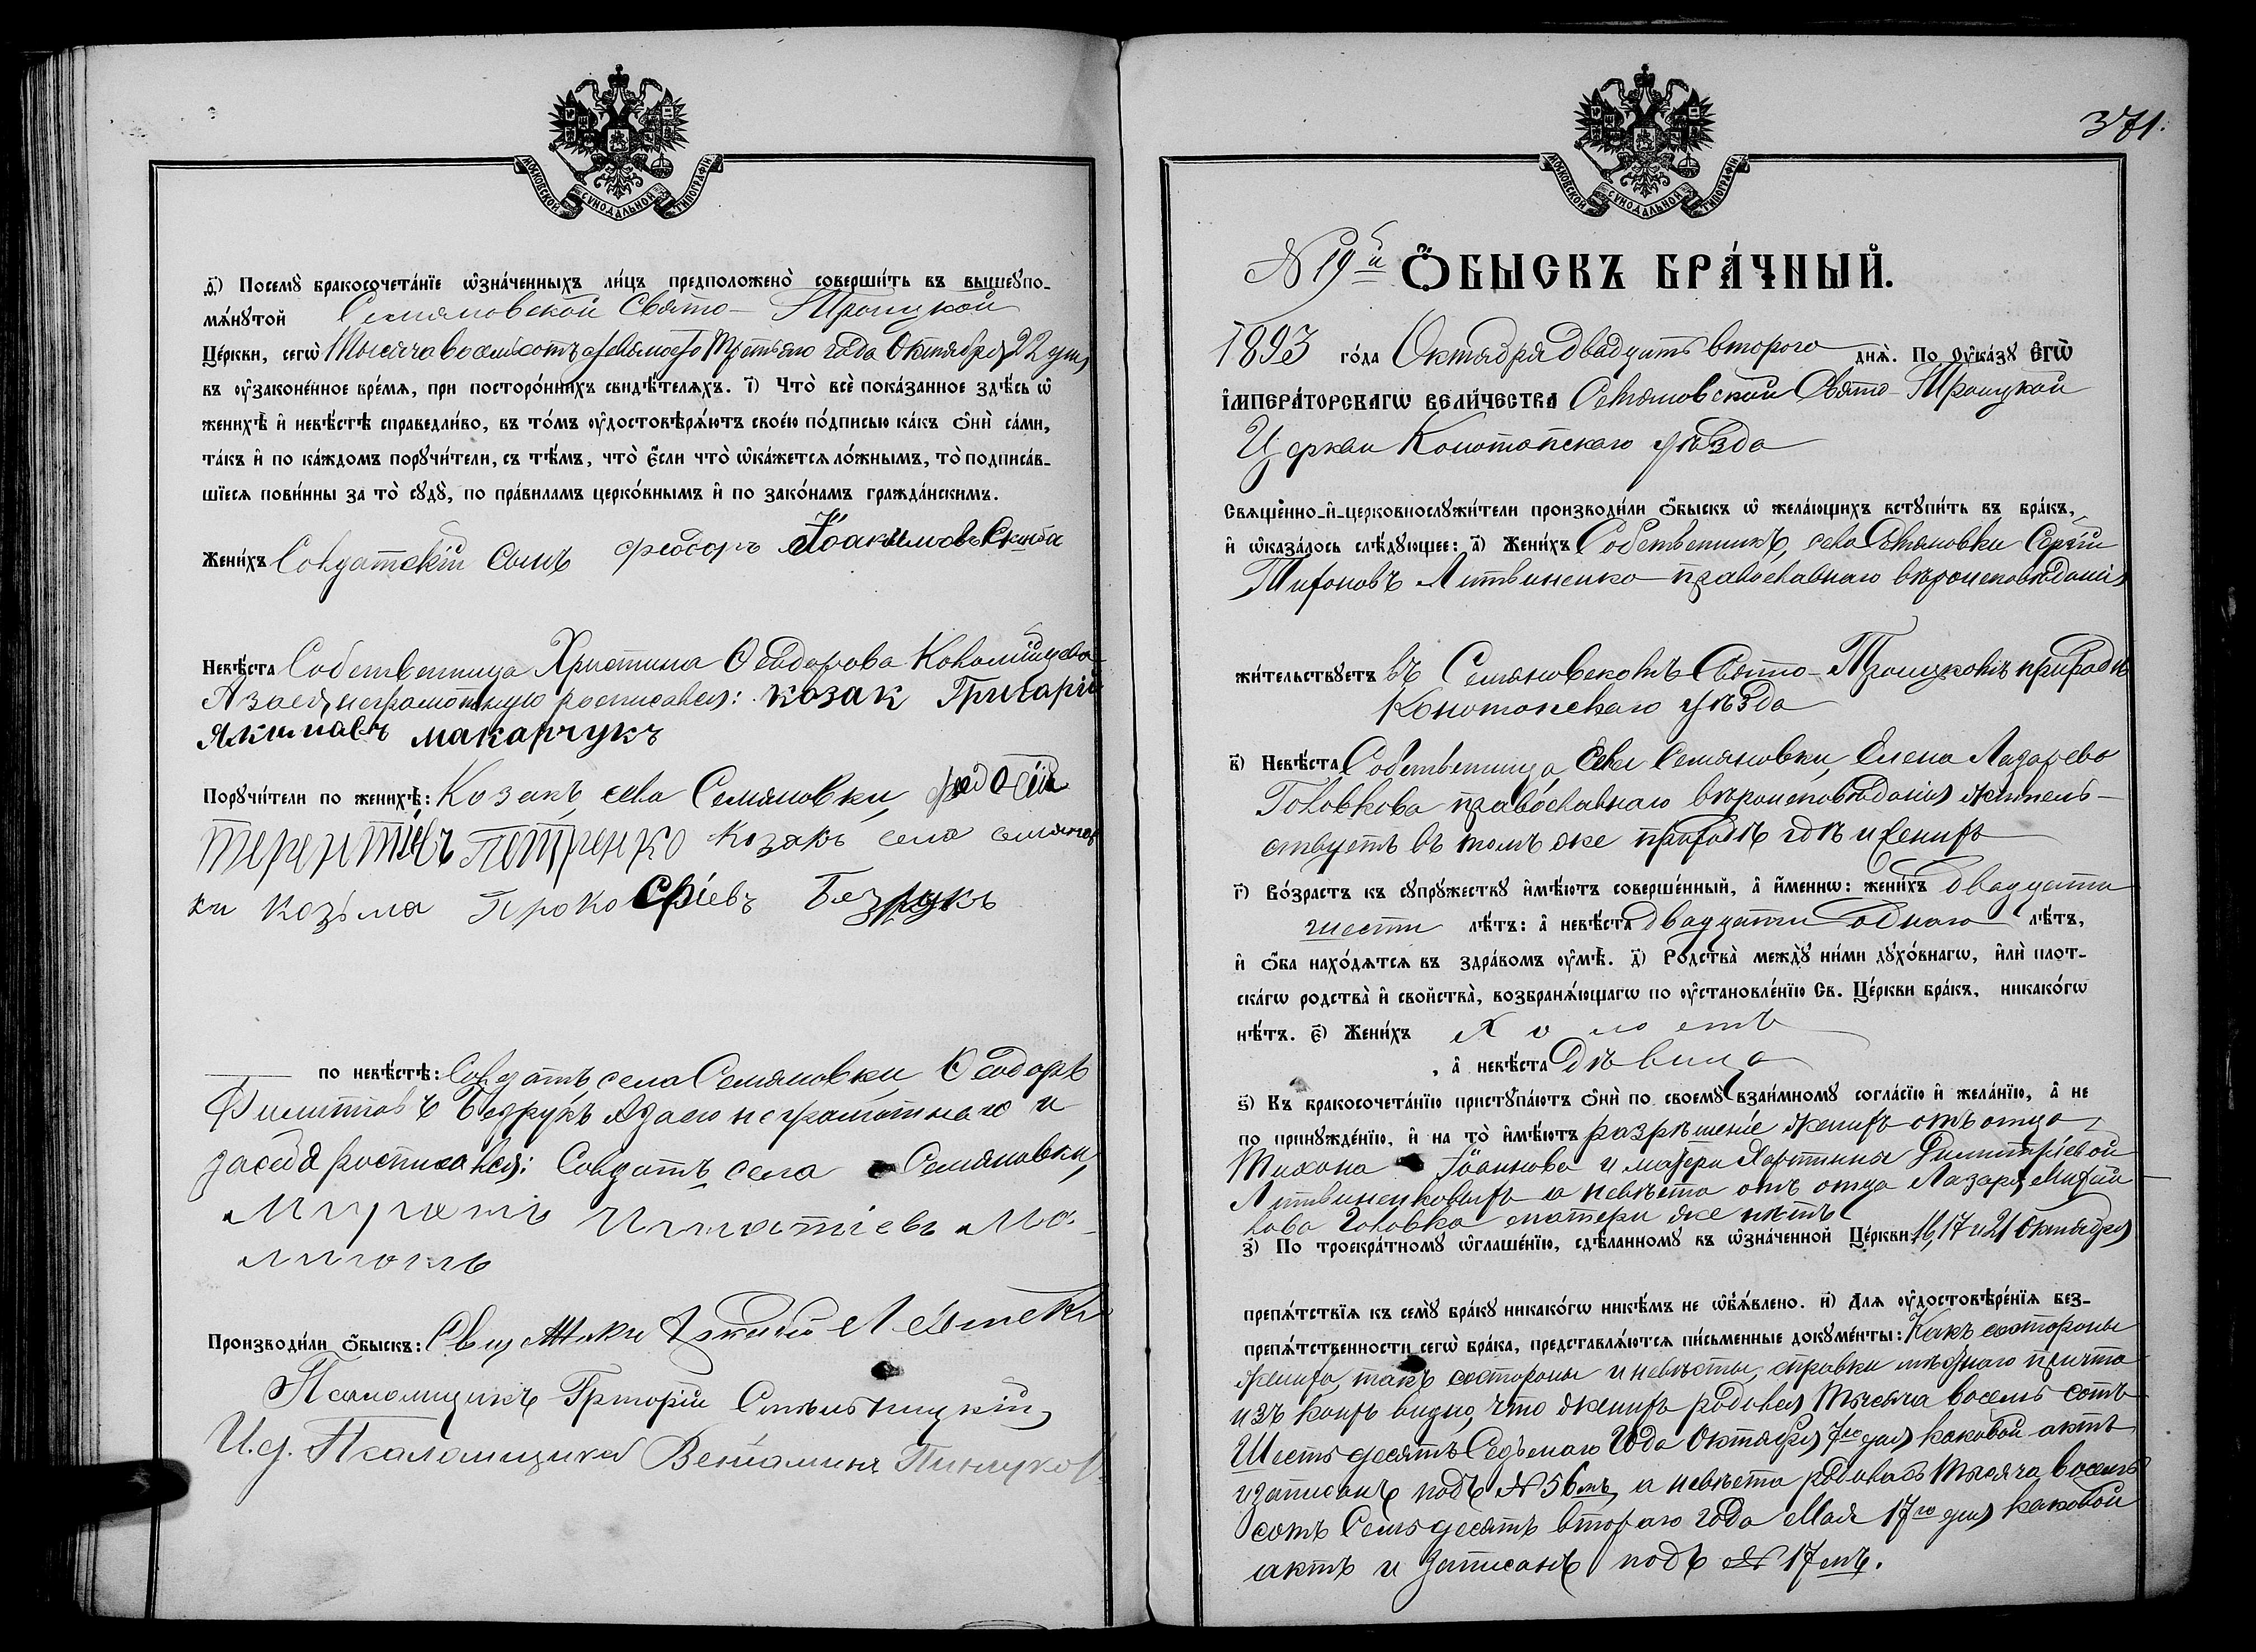 МОСКОВСКОЙ СѴНОДАЛЬНОЙ ТИПОГРАФІИ
д҃) Посемꙋ̀ бракосочета́нїе ѡ҆зна́ченныхъ ли́цъ предположено̀ соверши́ть въ вышеꙋпо-
мѧ́нꙋтой Семяновской Свято-Троицкой
Це́ркви, сегѡ̀ Тысяча восемьсотъ девяносто Третьяго года Октября 22 дня
въ ᲂу҆законе́нное вре́мѧ, при посторо́ннихъ свидѣ́телѧхъ. і҃) Что̀ всѐ пока́занное здѣ́сь ѡ҆
женихѣ̀ и҆ невѣ́стѣ справедли́во, въ то́мъ ᲂу҆достовѣрѧ́ютъ свое́ю по́дписью ка́къ ѻ҆нѝ са́ми,
та́къ и҆ по ка́ждомъ порꙋчи́тели, съ тѣ́мъ, что̀ є҆́сли что̀ ѡ҆ка́жетсѧ ло́жнымъ, то̀ подписа́в-
шїесѧ пови́нны за то̀ сꙋдꙋ̀, по пра́виламъ церко́внымъ и҆ по зако́намъ гражда́нскимъ.
Жени́хъ Солдатскій сынъ феодоръ Іоакимовъ
Невѣ́ста Собственница Христина Ѳеодорова Коломійцева
А за нея неграмотную росписался: козак Григорій
Якимавъ макарчукъ
Порꙋчи́тели по женихѣ̀: Козакъ села Семяновки, федосій
терентіевъ Петренко козакъ села семянов
ки козьма Прокофіевъ Безрукъ
по невѣ́стѣ: Солдатъ села Семяновки Ѳеодоръ
Филиповъ Безрукъ А за него неграмотнаго и
за себя росписался: Солдатъ села Семяновки,
Игнатіевъ
Производи́ли ѻ҆́быскъ: Свящ
Псаломщикъ Григорій
И. д. Псаломщика Веніаминъ
371.
МОСКОВСКОЙ СѴНОДАЛЬНОЙ ТИПОГРАФІИ
N 19й Ѻ҆́БЫСКЪ БРА́ЧНЫЙ.
1893 го́да Октября двадцать второго днѧ̀. По Оу҆ка́зꙋ Є҆гѡ̀
І҆мпера́торскагѡ Вели́чества Семяновской Свято-Троицкой
Церкви Конотопскаго уѣзда
Свѧще́нно-и҆-церковнослꙋжи́тели производи́ли ѻ҆́быскъ ѡ҆ жела́ющихъ встꙋпи́ть въ бра́къ,
и҆ ѡ҆каза́лось слѣ́дꙋющее: а҃) Жени́хъ Собственникъ, села Семяновки Сергій
Тихоновъ Литвиненко православнаго вѣроисповѣданія
жи́тельствꙋетъ въ Семяновскомъ Свято-Троицкомъ приходѣ
Конотопскаго уѣзда
в҃) Невѣ́ста Собственница, села Семяновки, Елена Лазарева
Головкова православнаго вѣроисповѣданія жительствуетъ
ствуетъ въ томъ же приходѣ гдѣ и женихъ
г҃) Во́зрастъ къ сꙋпрꙋ́жествꙋ и҆мѣ́ютъ соверше́нный, а҆ и҆́меннѡ: жени́хъ двадцати
шести лѣ́тъ: а҆ невѣ́ста двадцати одного лѣ́тъ,
и҆ ѻ҆́ба нахо́дѧтсѧ въ здра́вомъ ᲂу҆мѣ̀. д҃) Родства̀ междꙋ̀ ни́ми дꙋхо́внагѡ, и҆лѝ плот-
ска́гѡ родства̀ и҆ сво́йства, возбранѧ́ющагѡ по ᲂу҆становле́нїю Св. Це́ркви бра́къ, никако́гѡ
нѣ́тъ. є҃) Жени́хъ Холостъ
, а҆ невѣ́ста Дѣвица
ѕ҃) Къ бракосочета́нїю пристꙋпа́ютъ ѻ҆нѝ по своемꙋ̀ взаи́мномꙋ согла́сїю и҆ жела́нїю, а҆ не
по принꙋжде́нїю, и҆ на то̀ и҆мѣ́ютъ разрѣшеніе женихъ отъ отца
Тихона Іоанова и матери Димитріевой
Литвиненковыхъ а невѣста отъ отца Лазаря Михаи
лова Головка матери же нѣтъ
з҃) По троекра́тномꙋ ѡ҆глаше́нїю, сдѣ́ланномꙋ въ ѡ҆зна́ченной Це́ркви 16, 17 и 21 Октября
препѧ́тствїѧ къ семꙋ̀ бра́кꙋ никако́гѡ никѣ́мъ не ѡ҆б̾ѧ́влено. и҃) Длѧ ᲂу҆достовѣре́нїѧ без-
препѧ́тственности сегѡ̀ бра́ка, представлѧ́ютсѧ пи́сьменные докꙋме́нты: Какъ состороны
жениха, такъ состороны и невѣсты, справки мѣстнаго причта
изъ коихъ видно, что женихъ родился Тысяча восемь сотъ
Шесть десятъ Седьмаго Года Октября 7го дня каковой актъ
и записанъ подъ № 56мъ, а невѣста родилась Тысяча восемь
сотъ Семь десятъ втораго года Мая 17го дня каковой
актъ и записанъ подъ № 17мъ.